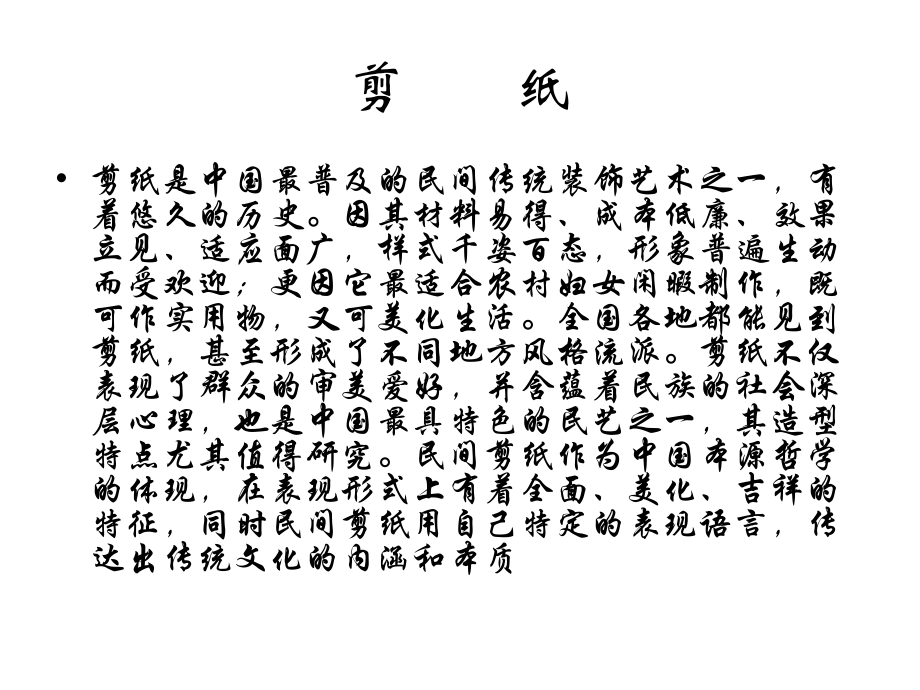 剪 纸
• 剪纸是中国最普及的民间传统装饰艺术之一，有
着悠久的历史。因其材料易得、成本低廉、效果
立见、适应面广，样式千姿百态，形象普遍生动
而受欢迎；更因它最适合农村妇女闲暇制作，既
可作实用物，又可美化生活。全国各地都能见到
剪纸，甚至形成了不同地方风格流派。剪纸不仅
表现了群众的审美爱好，并含蕴着民族的社会深
层心理，也是中国最具特色的民艺之一，其造型
特点尤其值得研究。民间剪纸作为中国本源哲学
的体现，在表现形式上有着全面、美化、吉祥的
特征，同时民间剪纸用自己特定的表现语言，传
达出传统文化的内涵和本质